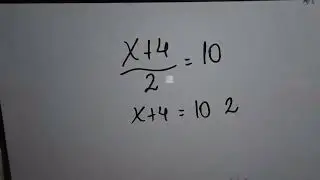 x+4/2 = 10
x+4 = 10 2